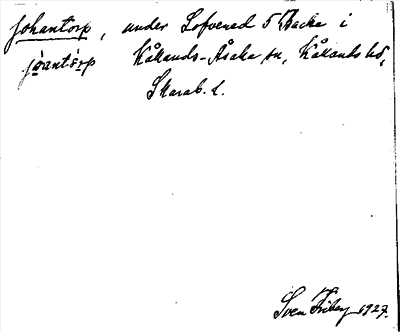 Johantorp, under Lofvenad 5 Backa i
jòantórp Kållands-Åsaka sn, Kållands hd,
Skarab. l.
Sven Friberg 1927.